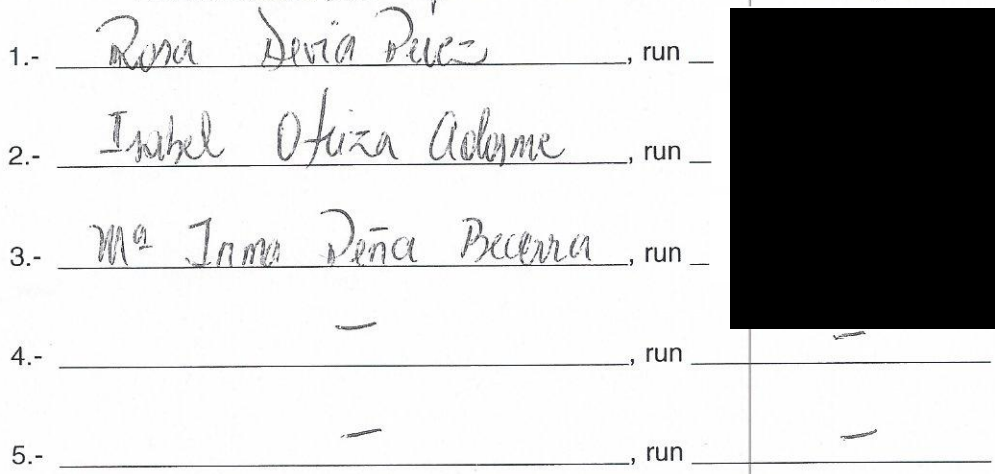 1.- Rosa Devia Pérez, run
2.- Isabel Otiza Adasme, run
3.- Mª Inma Peña Becerra, run
4.- —, run —
5.- —, run —